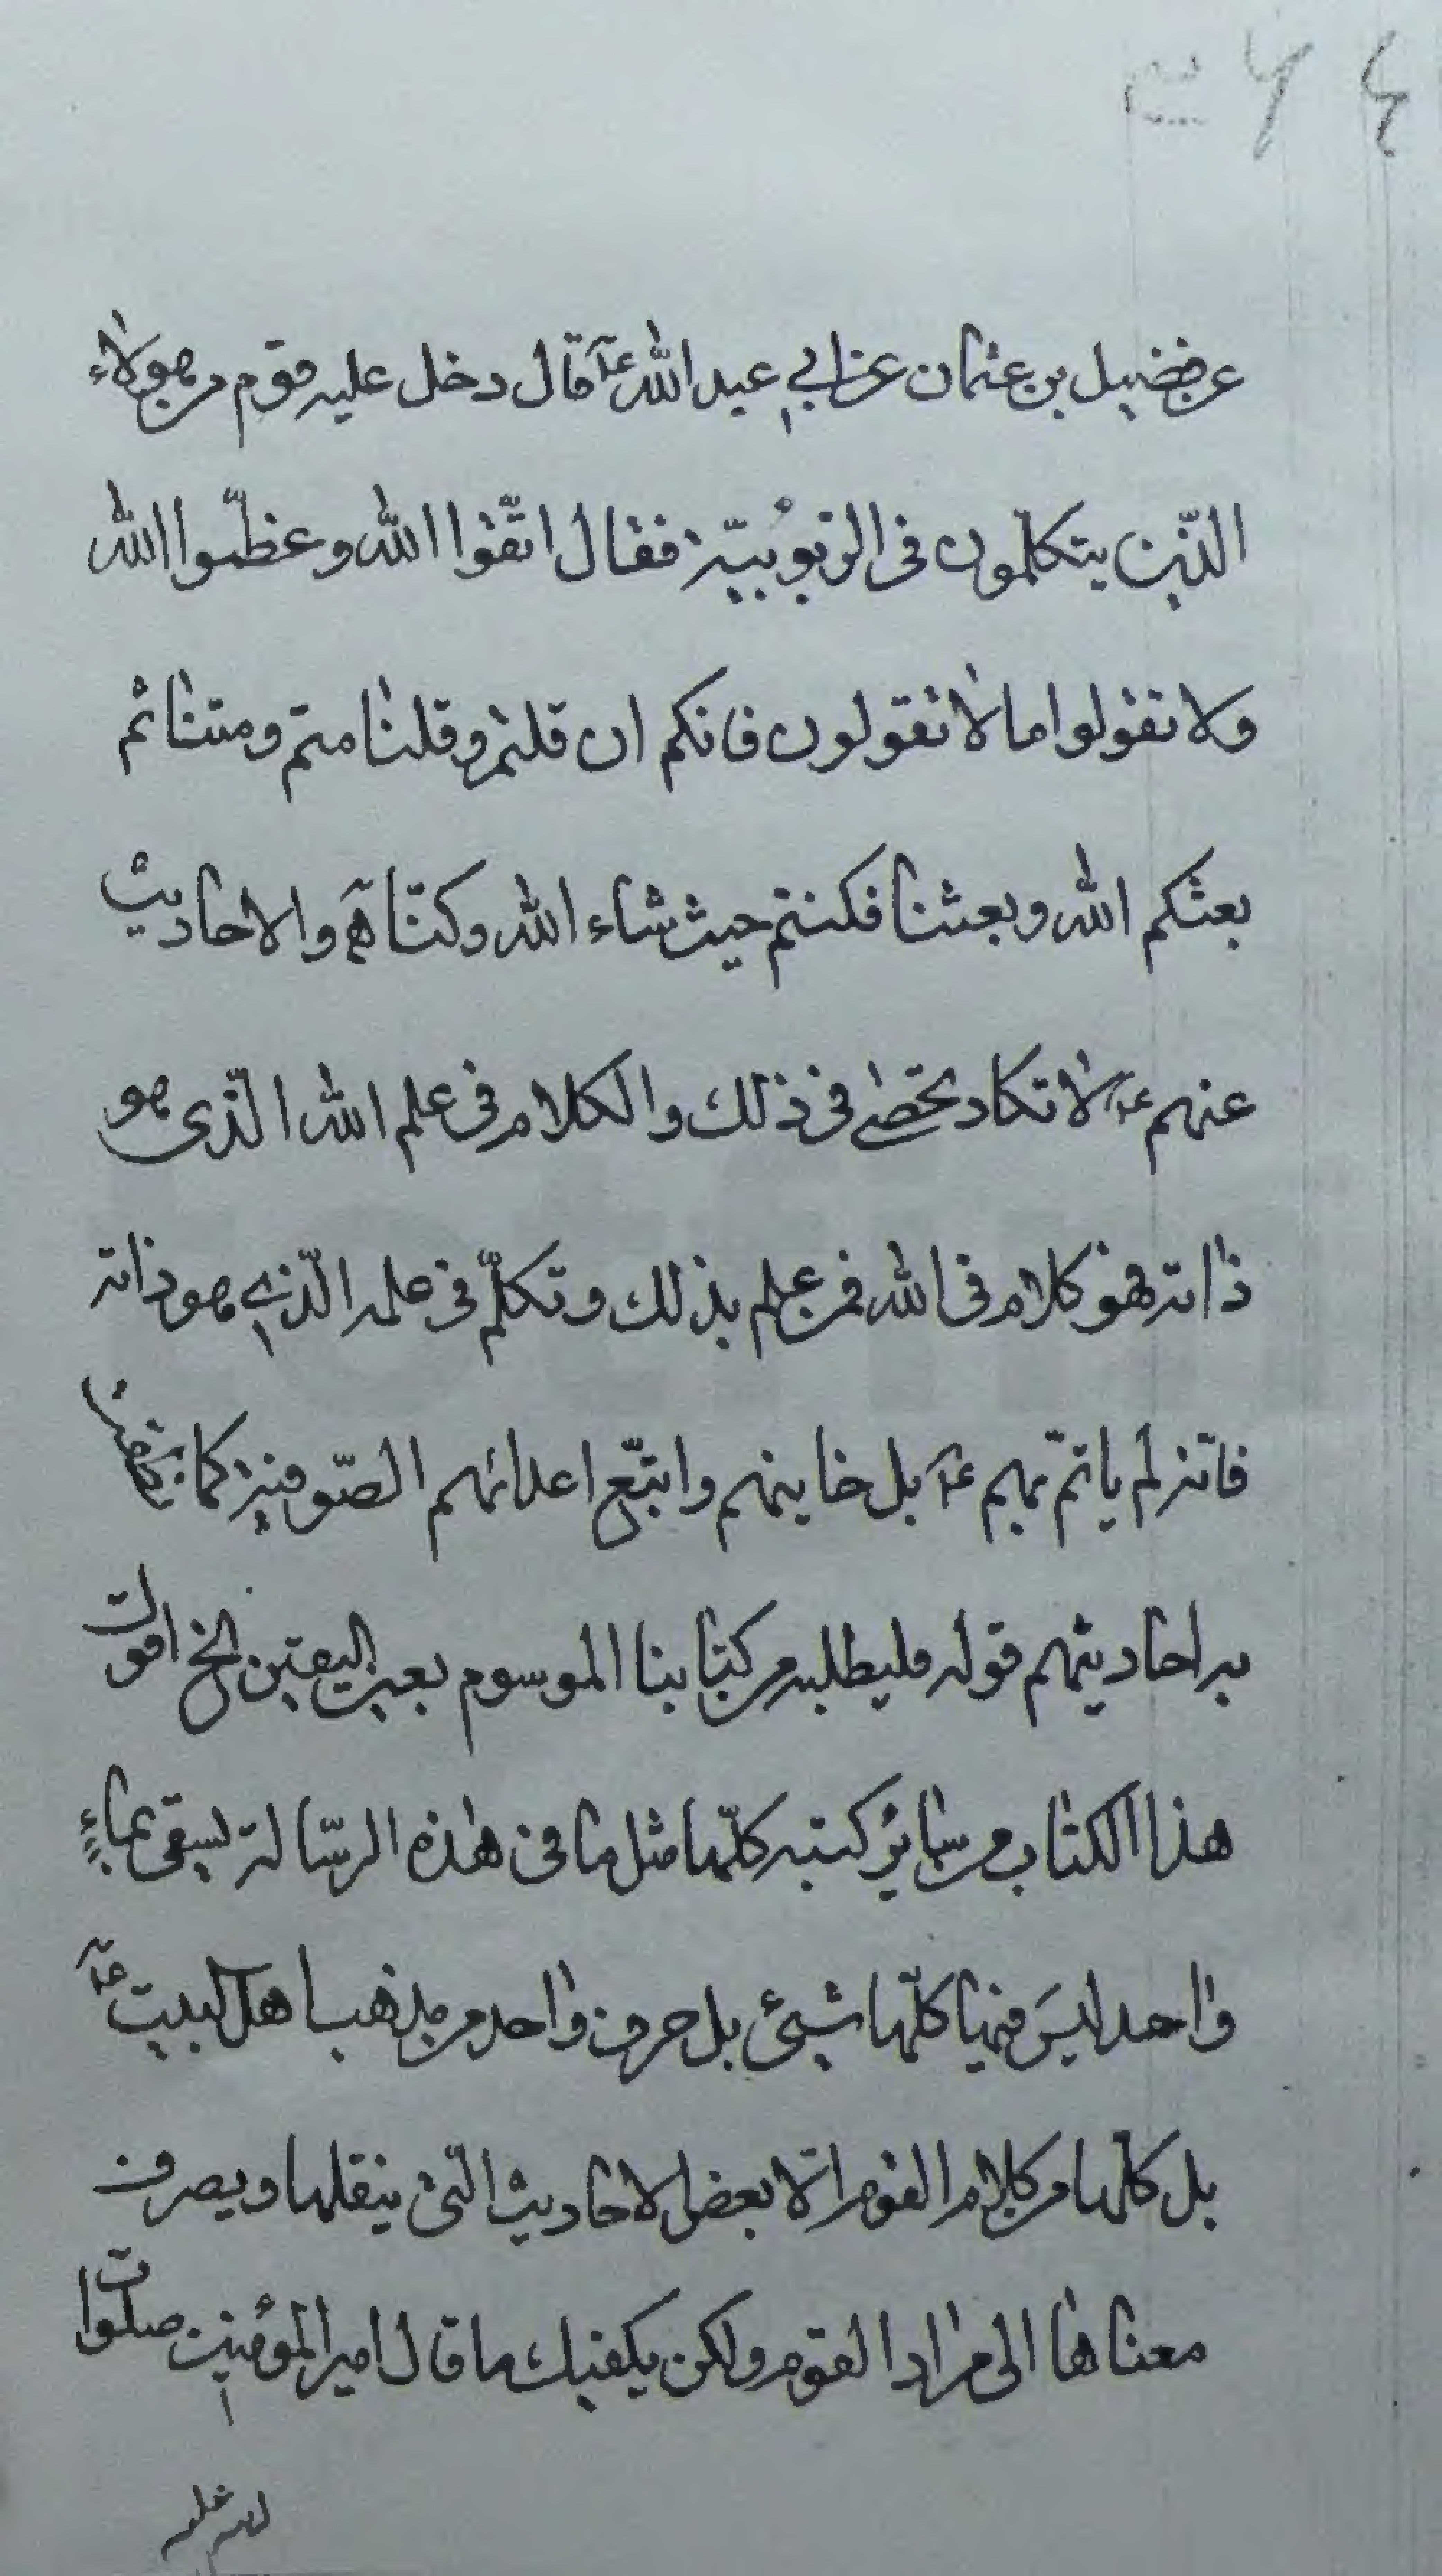 عن فضيل بن عثمان عن ابي عبد الله عآ قال دخل عليه قوم من هؤلاء
الذين يتكلمون فى الربوبيّة فقال اتّقوا الله وعظّموا الله
ولا تقولوا ما لا نقول فانكم ان قلتم وقلنا متم ومتنا ثم
بعثكم الله وبعثنا فكنتم حيث شاء الله وكنّا هـ والاحاديث
عنهم عآ لا تكاد تحصى فى ذلك والكلام فى علم الله الّذى هو
ذاته هو كلام فى الله فمن علم بذلك وتكلّم فى علمه الّذي هو ذاته
فانّه لم ياتمّ بهم عآ بل خاينهم واتبّع اعدائهم الصّوفية كما
به احاديثهم قوله فليطلبه من كتابنا الموسوم بعين اليقين الخ اقول
هذا الكتاب من سائر كتبه كلّها مثل ما فى هذه الرّسالة يسقى بماءٍ
واحد ليس فيها كلّها شيئ بل حرف واحد من مذهب اهل البيت عآ
بل كلّها من كلام القوم الّا بعض الاحاديث الّتى ينقلها ويصرف
معناها الى مراد القوم ولكن يكفيك ما قال امير المؤمنين صلوات
الله عليه